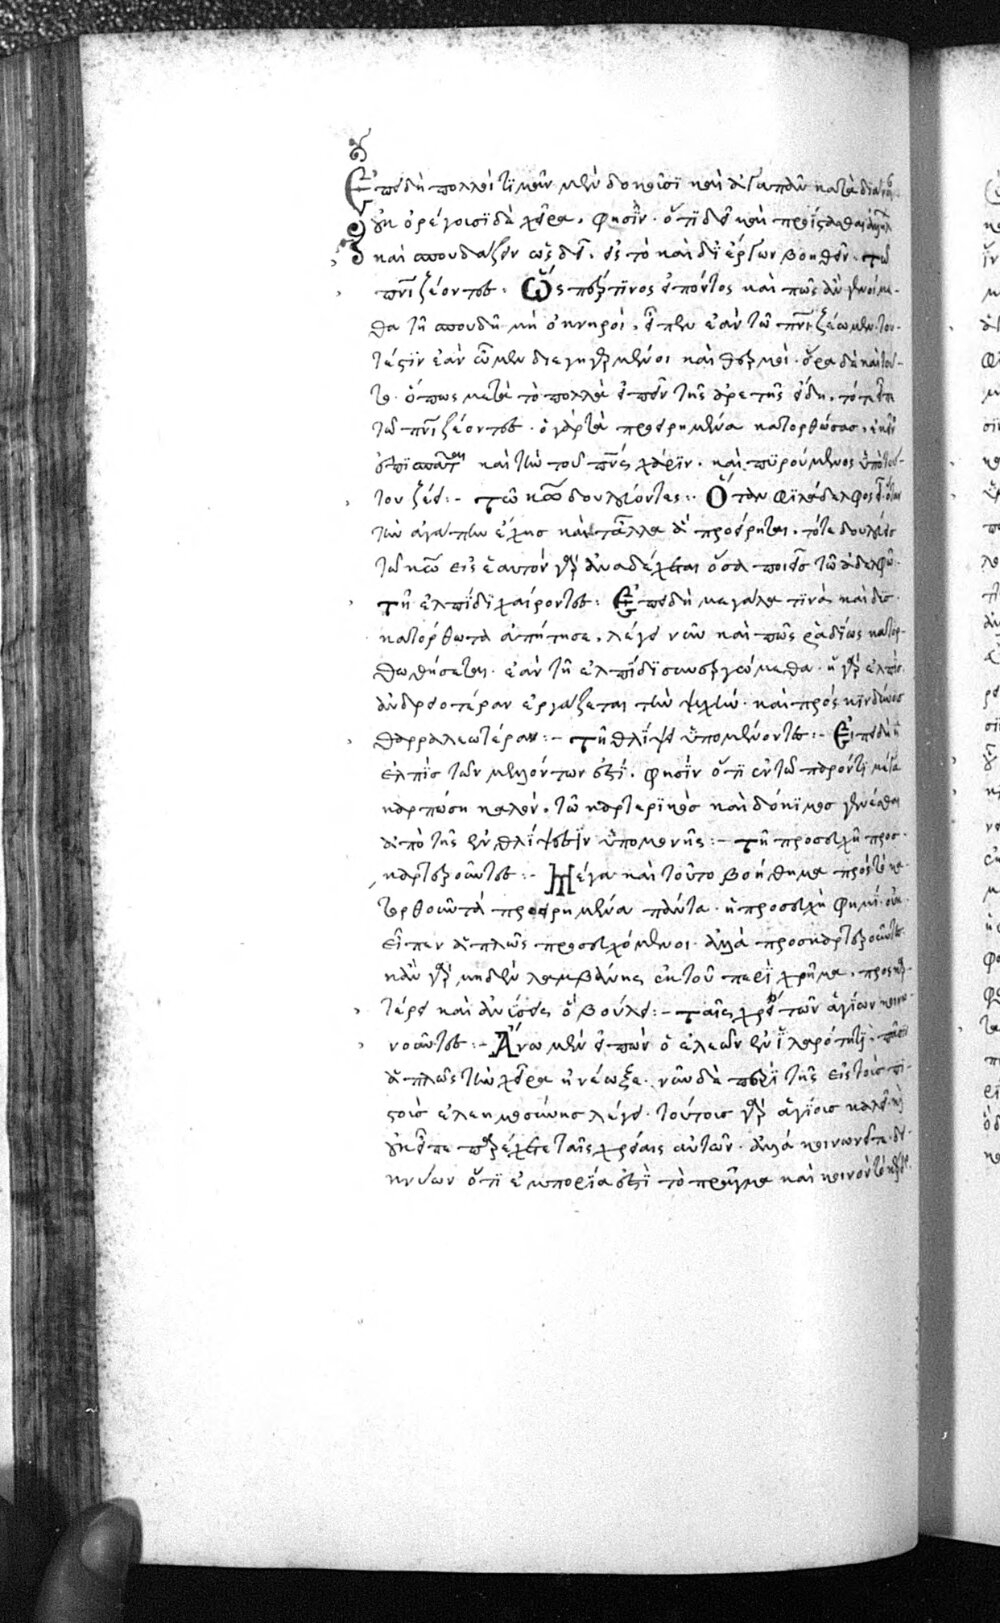 Ἐπειδὴ πολλοὶ τιμᾶν μὲν δοκοῦσι καὶ ἀγαπᾶν κατὰ διάνοιαν
οὐκ ὀρέγουσι δὲ χεῖρα, φησὶν ὅτι δεῖ καὶ προΐστασθαι
καὶ σπουδάζειν ὡς δεῖ, εἰς τὸ καὶ δι' ἔργων βοηθεῖν· τῷ
πνι ζέοντες· Ὥσπερ τινὸς εἰπόντος καὶ πῶς ἂν γενοίμε-
θα τῇ σπουδῇ μὴ ὀκνηροὶ, εἶπεν ἐὰν τῷ πνι ζέωμεν· του-
τέστιν ἐὰν ὦμεν διεγηγερμένοι καὶ θερμοί· ὅρα δὲ καὶ τοῦ-
το· ὅπως μετὰ τὸ πολλὰ εἰπεῖν τῆς ἀρετῆς εἴδη, τότε εἶπε
τῷ πνι ζέοντες· ὁ γὰρ τὰ προειρημένα κατορθώσας, ἐκεῖνος
ἐπισπᾶται καὶ τὴν τοῦ πνς χάριν· καὶ πυρούμενος ὑπὸ τού-
του ζέει:- τῷ κω δουλεύοντες:- Ὅταν φιλάδελφος
τὴν ἀγάπην ἔχῃς καὶ τἄλλα ἃ προείρηται, τότε δουλεύεις
τῷ κω εἰς ἑαυτὸν γὰρ ἀναδέχεται ὅσα ποιεῖς τῷ ἀδελφῷ·
τῇ ἐλπίδι χαίροντες:· Ἐπειδὴ μεγάλα τινὰ καὶ δυσ-
κατόρθωτα ἀπῄτησε, λέγει νῦν καὶ πῶς ῥαδίως κατορ-
θωθήσεται· ἐὰν τῇ ἐλπίδι συνεργώμεθα· ἡ γὰρ ἐλπὶς
ἀνδρειοτέραν ἐργάζεται τὴν ψυχήν· καὶ πρὸς κινδύνους
θαρραλεωτέραν:- τῇ θλίψει ὑπομένοντες:- Ἐπειδὴ ἡ
ἐλπὶς τῶν μελλόντων ἐστὶ, φησὶν ὅτι ἐν τῷ παρόντι μέγα
καρπώσῃ καλόν, τῷ καρτερικὸς καὶ δόκιμος γενέσθαι
ἀπὸ τῆς ἐν θλίψεσιν ὑπομονῆς:- τῇ προσευχῇ προσ-
καρτεροῦντες:- Μέγα καὶ τοῦτο βοήθημα πρὸς τὸ κα-
τορθοῦν τὰ προειρημένα πάντα· ἡ προσευχὴ φημί· οὐκ
εἶπεν ἁπλῶς προσευχόμενοι· ἀλλὰ προσκαρτεροῦντες·
κἂν γὰρ μηδὲν λαμβάνῃς ἐκ τοῦ παραχρῆμα, προσκαρ-
τέρει καὶ ἀνύσεις ὃ βούλει:- ταῖς χρείαις τῶν ἁγίων κοινω-
νοῦντες:- Ἄνω μὲν εἰπὼν ὁ ἐλεῶν ἐν ἱλαρότητι· πᾶσι
ἁπλῶς τὴν χεῖρα ἠνέῳξε· νῦν δὲ περὶ τῆς εἰς τοὺς πι-
στοὺς ἐλεημοσύνης λέγει· τούτους γὰρ ἁγίους καλεῖ· καὶ
οὐκ εἶπε παρέχετε ταῖς χρείαις αὐτῶν· ἀλλὰ κοινωνεῖτε· δει-
κνύων ὅτι ἐμπορία ἐστὶ τὸ πρᾶγμα καὶ κοινὸν τὸ κέρδος